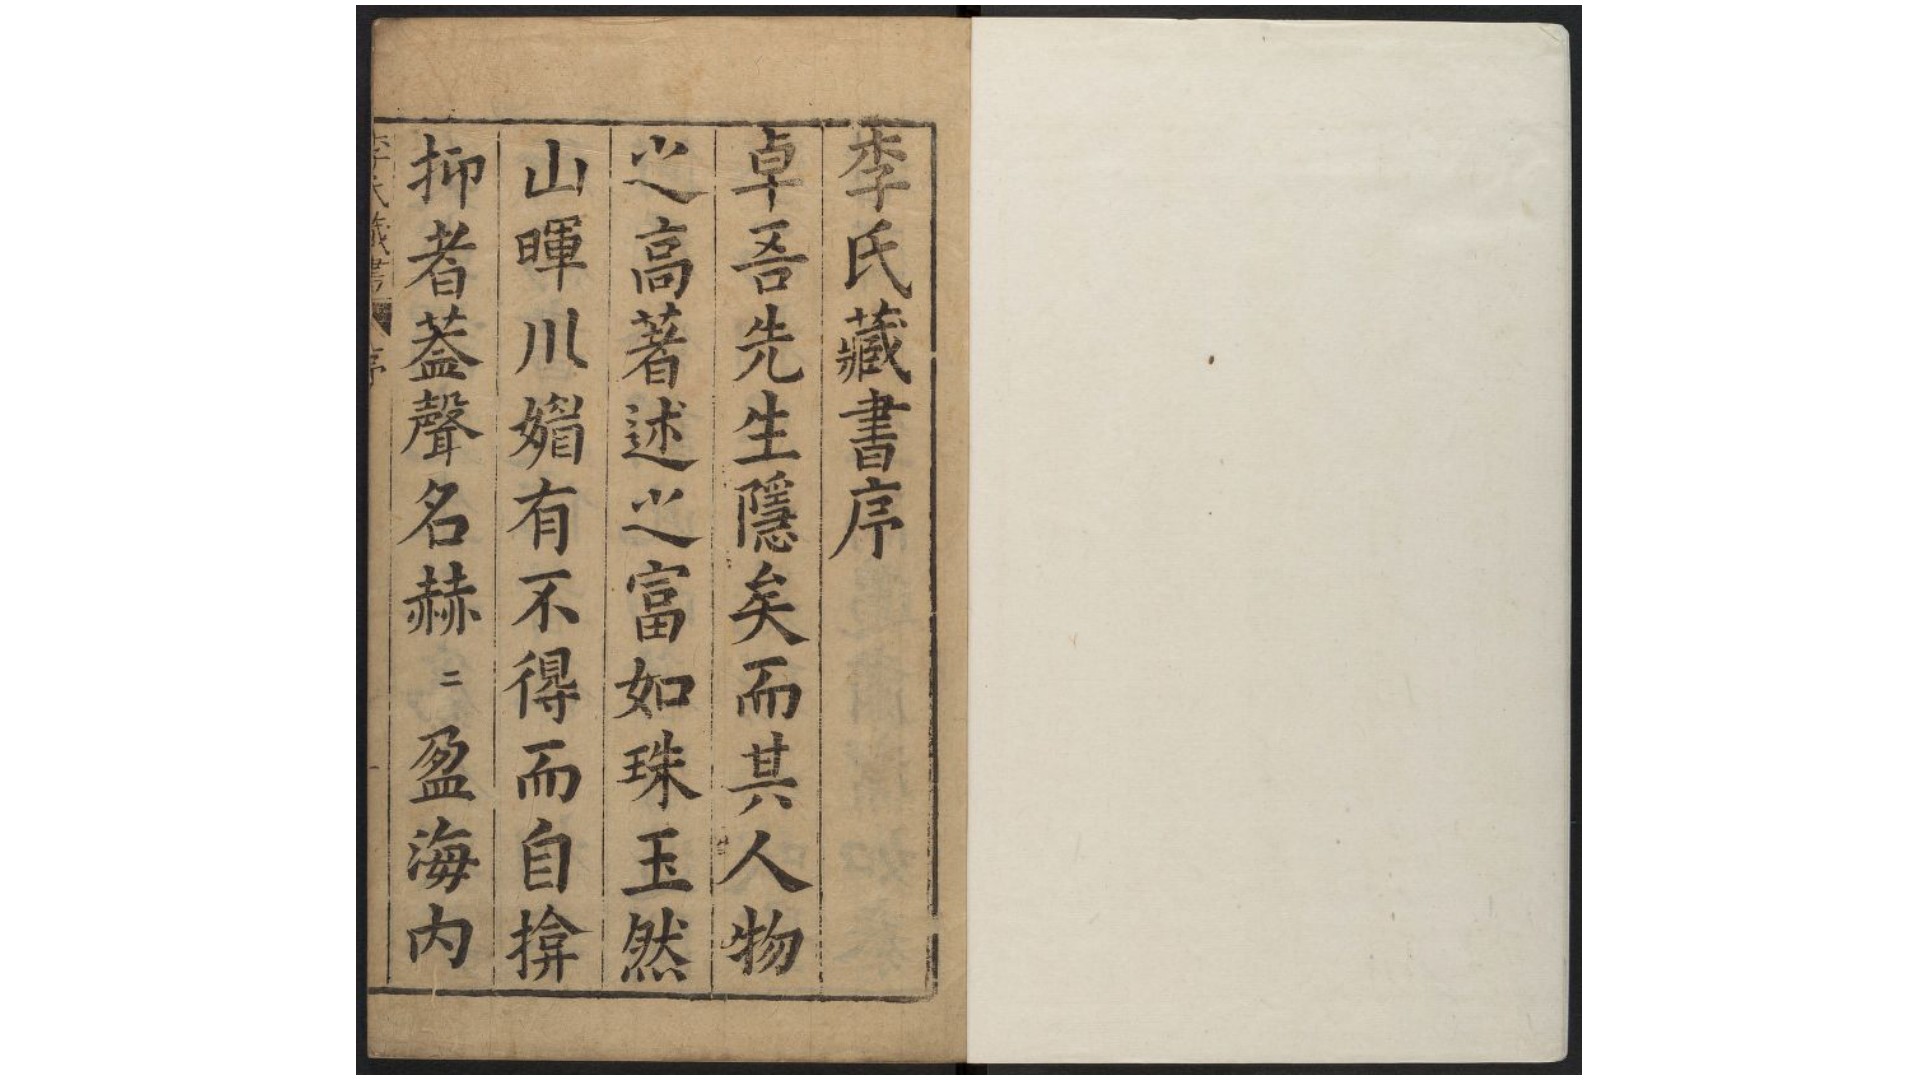 李氏藏書序
卓吾先生隱矣而其人物
之高著述之富如珠玉然
山暉川媚有不得而自揜
抑者葢聲名赫〻盈海内
李氏藏書 序